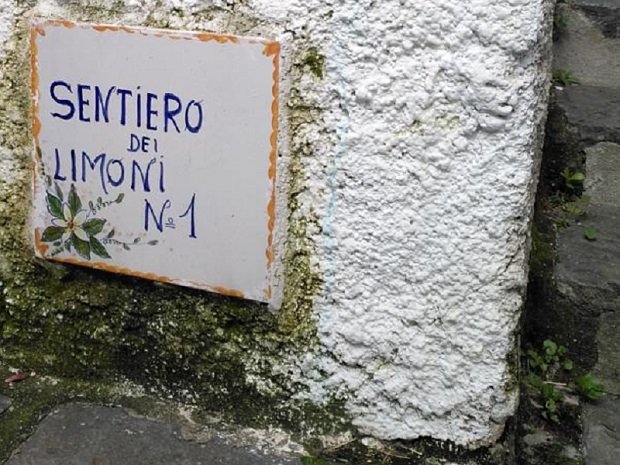 SENTIERO
DEI
LIMONI
Nº 1